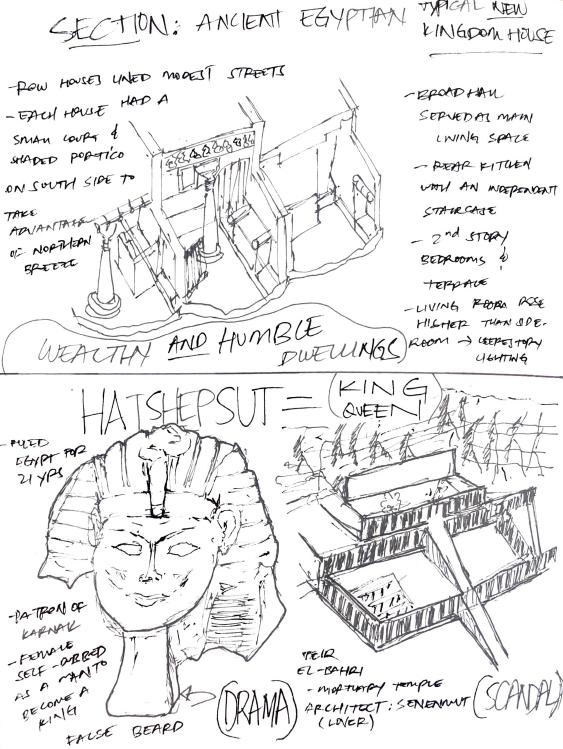 SECTION: ANCIENT EGYPTIAN
TYPICAL NEW
KINGDOM HOUSE
- ROW HOUSES LINED MODEST STREETS
- EACH HOUSE HAD A
SMALL COURT &
SHADED PORTICO
ON SOUTH SIDE TO
TAKE
ADVANTAGE
OF NORTHERN
BREEZE
- BROAD HALL
SERVED AS MAIN
LIVING SPACE
- REAR KITCHEN
WITH AN INDEPENDENT
STAIRCASE
- 2nd STORY
BEDROOMS &
TERRACE
- LIVING ROOM ROSE
HIGHER THAN SIDE-
ROOM → CLERESTORY
LIGHTING
WEALTHY AND HUMBLE
DWELLINGS
HATSHEPSUT =
KING
QUEEN
- RULED
EGYPT FOR
21 YRS
- PATRON OF
KARNAK
- FEMALE
SELF-DUBBED
AS A MAN TO
BECOME A
KING
FALSE BEARD
(DRAMA)
DEIR
EL-BAHRI
- MORTUARY TEMPLE
ARCHITECT: SENENMUT
(LOVER)
(SCANDAL)